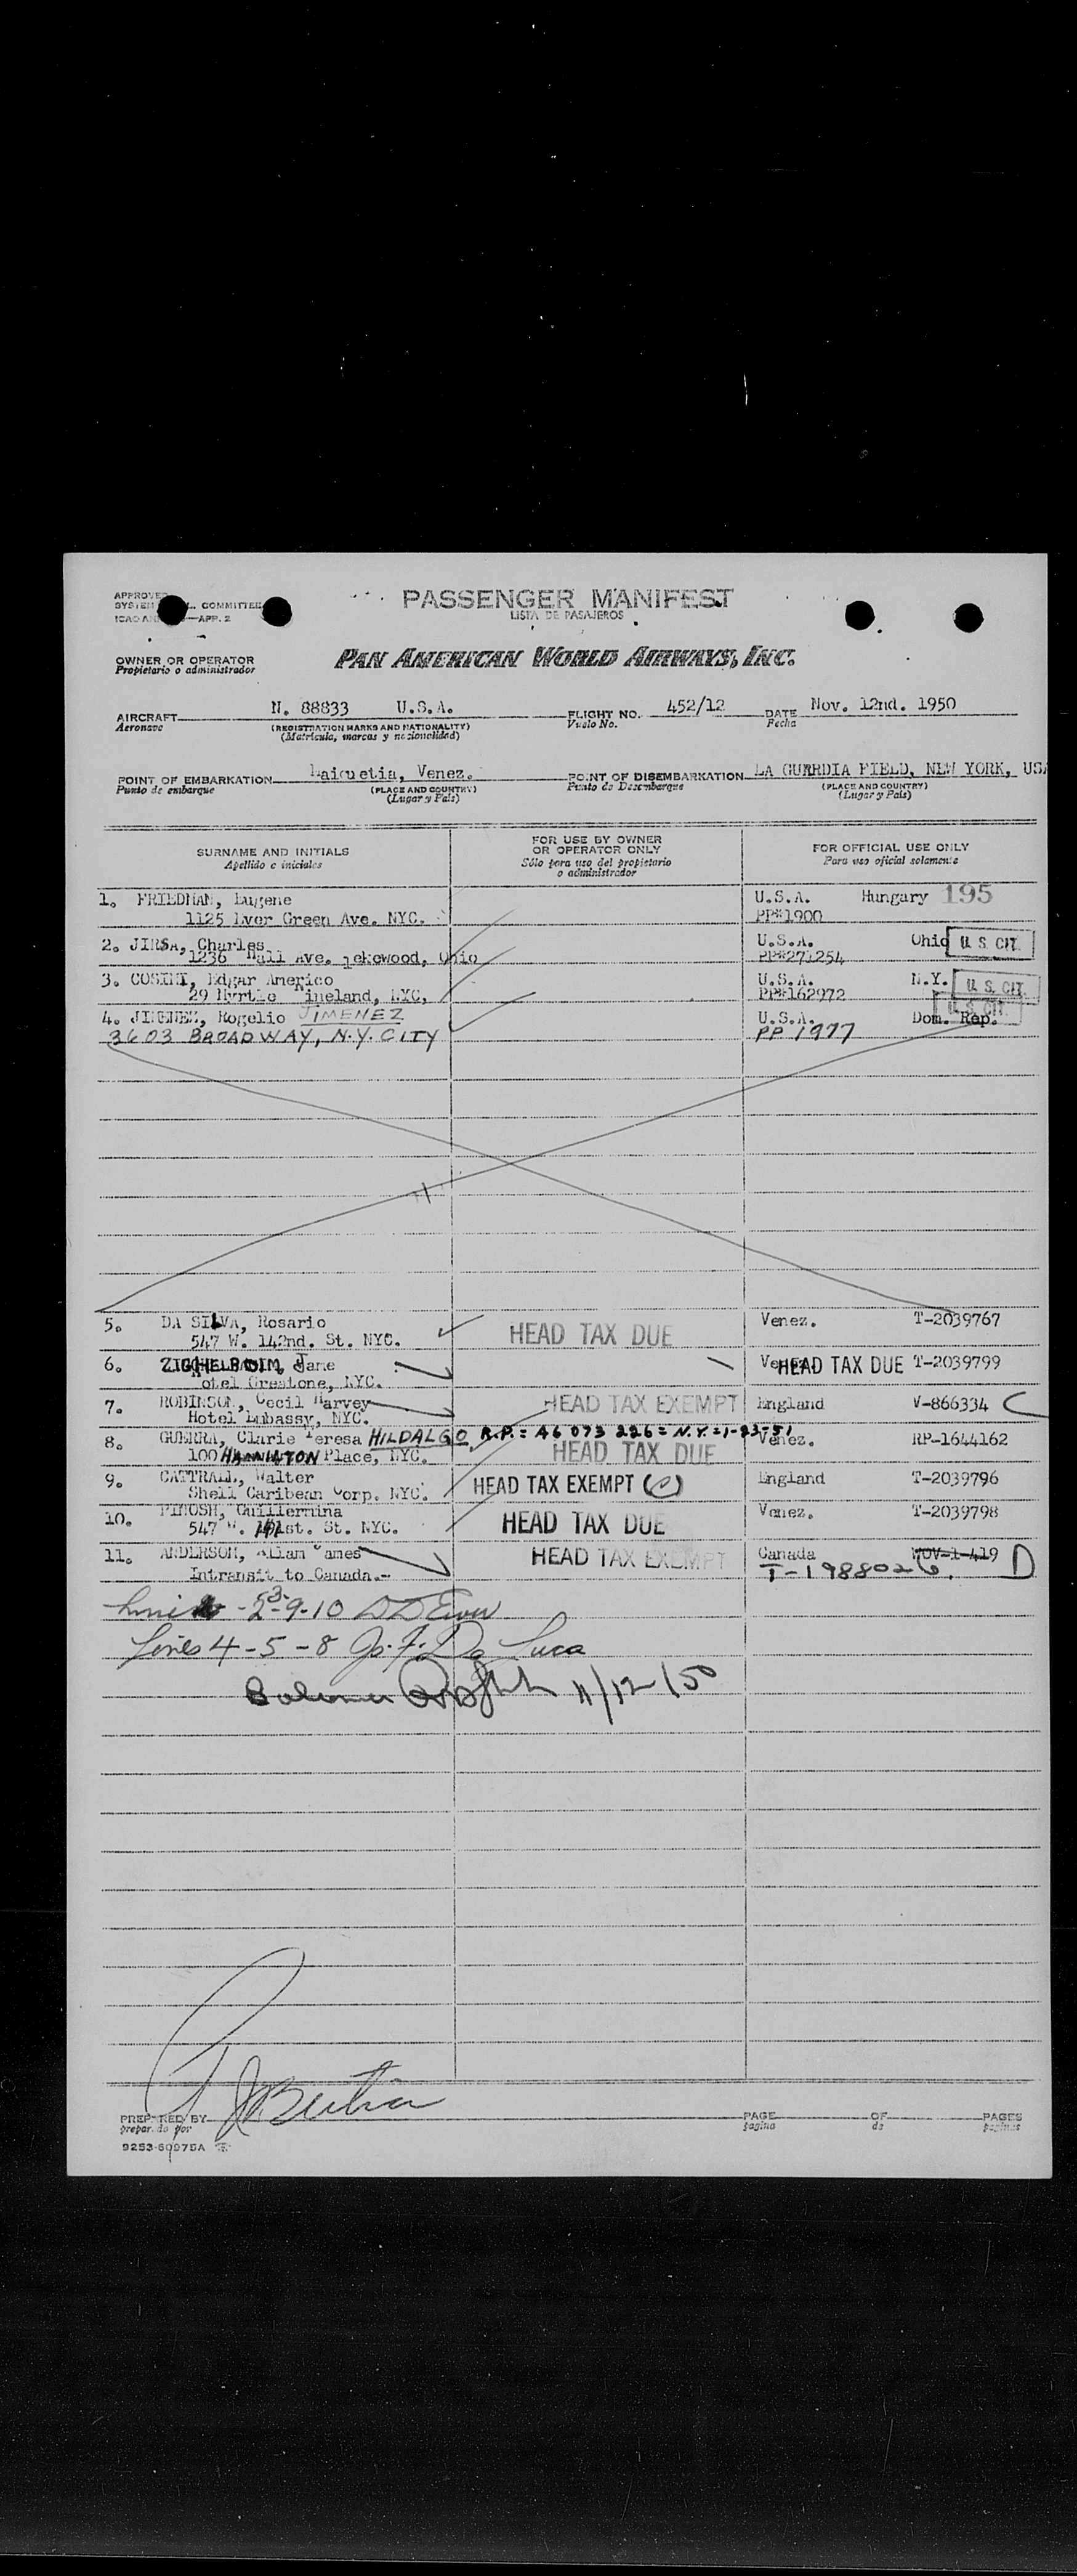 APPROVED
SYSTEM COMMITTEE
ICAO APP. 2
PASSENGER MANIFEST
LISTA DE PASAJEROS
OWNER OR OPERATOR
Propietario o administrador
PAN AMERICAN WORLD AIRWAYS, INC.
AIRCRAFT N. 88833 U.S.A. FLIGHT NO. 452/12 DATE Nov. 12nd. 1950
Aeronave (REGISTRATION MARKS AND NATIONALITY) Vuelo No. Fecha
(Matrícula, marcas y nacionalidad)
POINT OF EMBARKATION Maiquetia, Venez. POINT OF DISEMBARKATION LA GUERDIA FIELD, NEW YORK, USA
Punto de embarque (PLACE AND COUNTRY) Punto de Desembarque (PLACE AND COUNTRY)
(Lugar y País) (Lugar y País)
SURNAME AND INITIALS FOR USE BY OWNER OR OPERATOR ONLY FOR OFFICIAL USE ONLY
Apellido e iniciales Sólo para uso del propietario o administrador Para uso oficial solamente
1. FRIEDMAN, Eugene U.S.A. Hungary 195
1125 Ever Green Ave. NYC. PP#1900
2. JIRSA, Charles U.S.A. Ohio U.S. CIT.
1236 Hall Ave. Ohio PP#271254
3. COSINI, Edgar Americo U.S.A. N.Y. U.S. CIT.
29 Myrtle NYC, PP#162972 U.S. CIT.
4. JIMENEZ, Rogelio JIMENEZ U.S.A. Dom. Rep.
3603 BROADWAY, N.Y. CITY PP 1977
5. DA SILVA, Rosario HEAD TAX DUE Venez. T-2039767
547 W. 142nd. St. NYC.
6. Jane HEAD TAX DUE T-2039799
Hotel Greatone, NYC.
7. ROBINSON, Cecil Harvey HEAD TAX EXEMPT England V-866334 C
Hotel Embassy, NYC.
8. GUERRA, Clarie Teresa HILDALGO R.P.= A6 073 226 = N.Y. = 1-23-51 Venez. RP-1644162
100 Place, NYC. HEAD TAX DUE
9. CATTRALL, Walter HEAD TAX EXEMPT (C) England T-2039796
Shell Caribean Corp. NYC.
10. PINOSH, Guillermina HEAD TAX DUE Venez. T-2039798
547 W. St. NYC.
11. ANDERSON, Allam James HEAD TAX EXEMPT Canada NOV-1-419 D
Intransit to Canada.- T-1988026.
-9-10
Lines 4-5-8 Jo. F. De Luca
11/12/50
PREPARED BY PAGE OF PAGES
preparado por página de páginas
9253-60975A